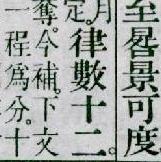 至晷景可度
月
定。
律數十二。
奪。今補。下文
一程爲分。十